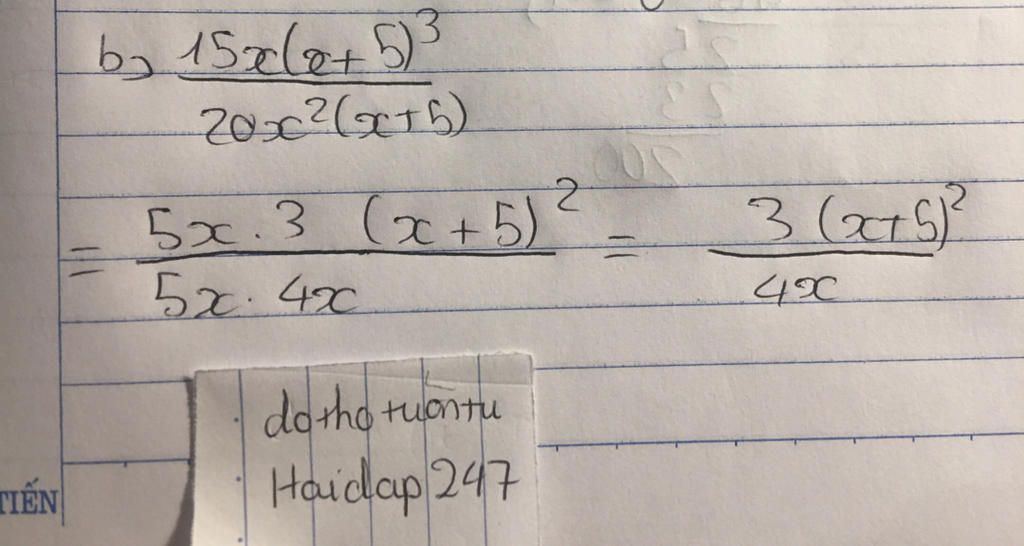 b) 15x(x+5)³
20x²(x+5)
= 5x.3 (x+5)² = 3(x+5)²
5x.4x 4x
dothotuontu
Hoidap247
TIẾN